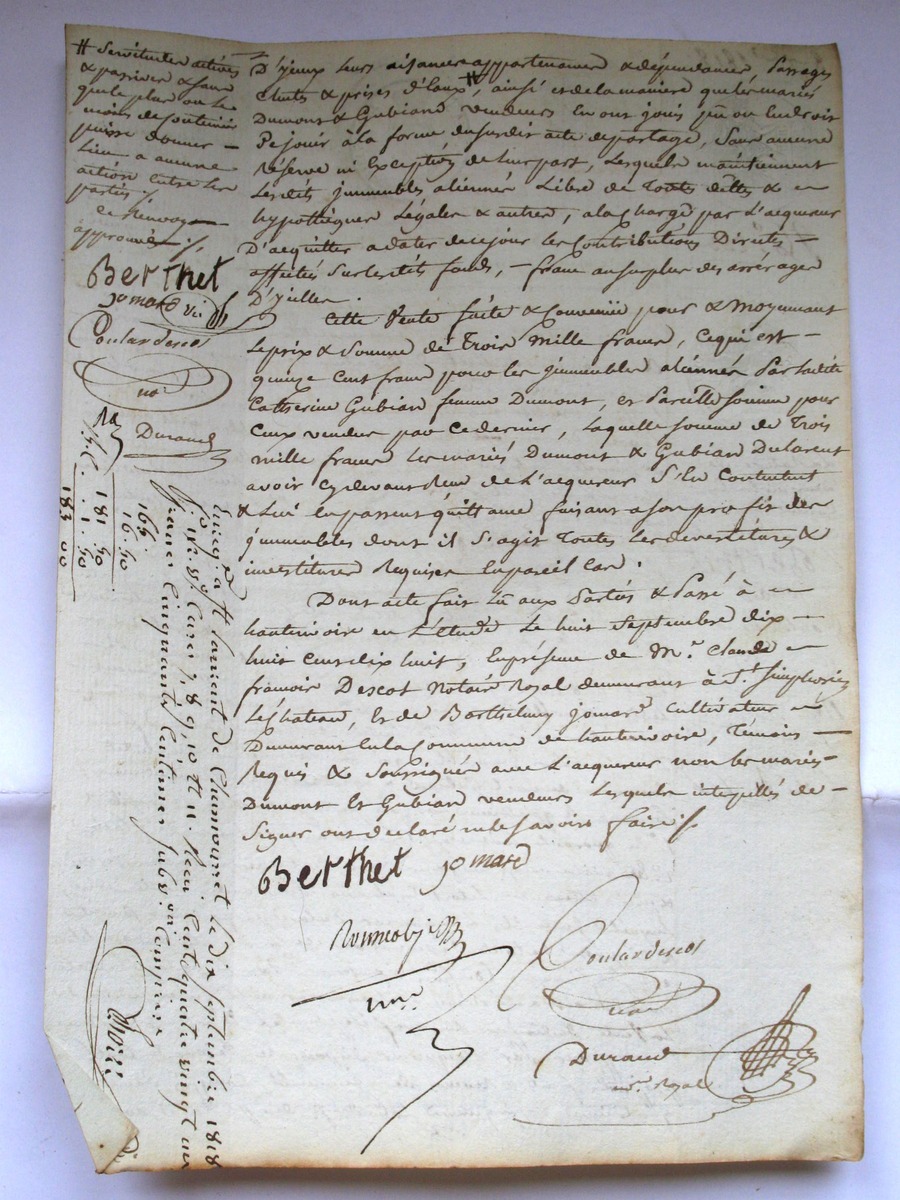 # Servitudes actives
& passives & sans
que le plus ou le
moins de contenue
puisse donner –
Lieu a aucune
action entre les
parties ./.
Ce Renvoy
approuvé ./.
Berthet
jomard
Coulardescos
not
Durand
D'yceux leurs aisances appartenances & dépendances, Passages
Chutes & prises d'Eaux #, ainsi et de la maniere que les mariés
Dumont & Gubian vendeurs en ont joui pu ou du droit
Pe jouir à la forme du susdit acte de partage, Sans aucune
réserve ni Exception de leur part, Lesquels maintiennent
Lesdits jmmeubles aliénnés Libre de Toutes dettes & –
hypothèques Légales & autres, à la charge par L'acquereur
D'acquitter a dater de ce jour les Contributions Directes –
affectées Sur lesdits fonds, – franc au surplus des arrérages
D'jcelles.
Cette Vente faite & Convenüe pour & Moyennant
Le prix & Somme de Trois Mille francs, ce qui est –
quinze cent francs pour les jmmeubles aliénnés Par ladite
Catherine Gubian femme Dumont, et Pareille somme pour
Ceux vendus par ce dernier, Laquelle somme de Trois
mille francs les mariés Dumont & Gubian Declarent
avoir cy devant Reçu de L'acquereur S'En Contentent
& Lui en passent quittance faisant a son profit des
jmmeubles dont il S'agit Toutes les devestitures &
investitures Requises En pareil Cas.
Dont acte fait Lû aux Parties & Passé à –
hauterivoire en L'étude Le huit Septembre dix –
huit Cent dix huit, En présence de Mr. Claude –
francois Descot Notaire Royal demeurant à St. Simphorien
Le Chateau, Et de Barthelemy jomard Cultivateur –
Demeurant En la Commune de hauterivoire, Témoins –
Requis & Soussignés avec L'acquereur non les mariés
Dumont Et Gubian vendeurs Lesquels interpellés de –
Signer ont déclaré ne le Savoir faire ./.
Berthet jomard
Coulardescos
not
Durand
nre. Royal
Enreg. à St Laurent de Chamousset le dix septembre 1818
fo. Vo. Cases 7, 8, 9, 10 et 11. Reçu Cent quatre vingt un
francs Cinquante Centimes Subv. on Comprise
165.
16. 50
181. 50
1. 50
183 00